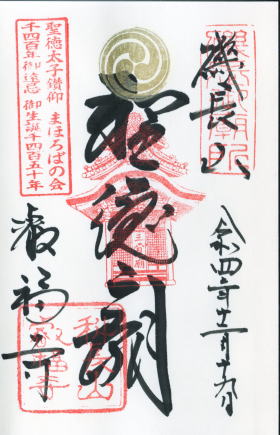 磯長山
令和四年十二月十九日
聖徳廟
叡福寺
聖徳太子讃仰 まほろばの会
千四百年御遠忌 御生誕千四百五十年